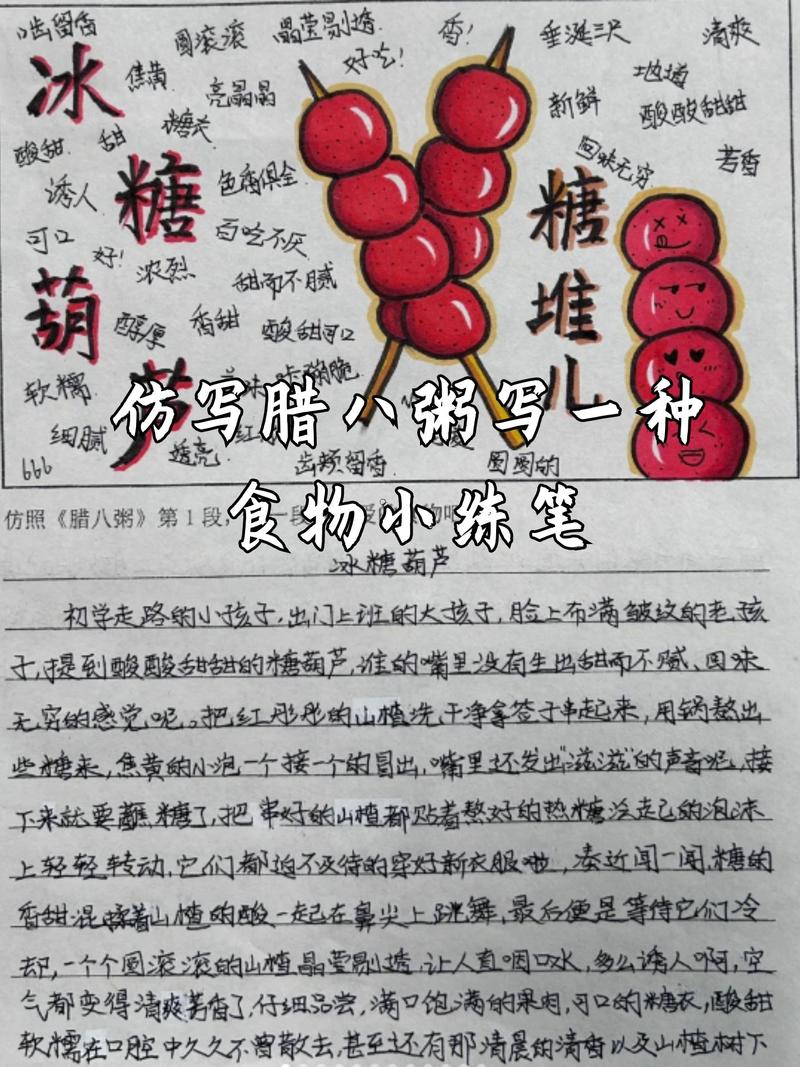 齿留香
圆滚滚
晶莹剔透
香!
垂涎三尺
清爽
好吃!
冰
焦黄
亮晶晶
新鲜
地道
酸酸甜甜
酸甜
甜
糖衣
回味无穷
芳香
诱人
糖
色香俱全
糖
可口
好!
百吃不厌
浓烈
甜而不腻
葫
醇厚
香甜
酸甜可口
堆
软糯
芦
嘣脆
儿
仿写腊八粥写一种
细腻
透亮
红
666
齿颊留香
圆圆的
食物小练笔
仿照《腊八粥》第1段,
一段
冰糖葫芦
初学走路的小孩子,出门上班的大孩子,脸上布满皱纹的老孩
子,提到酸酸甜甜的糖葫芦,谁的嘴里没有生出甜而不腻、回味
无穷的感觉呢。把红彤彤的山楂洗干净拿签子串起来,用锅熬出
些糖来,焦黄的小泡一个接一个的冒出,嘴里还发出“滋滋”的声音呢,接
下来就要蘸糖了,把串好的山楂都贴着熬好的热糖泛起的泡沫
上轻轻转动,它们都迫不及待的穿好新衣服啦,凑近闻一闻,糖的
香甜混揉着山楂的酸一起在鼻尖上跳舞,最后便是等待它们冷
却,一个个圆滚滚的山楂晶莹剔透,让人直咽口水,多么诱人啊,空
气都变得清爽芳香了,仔细品尝,满口饱满的果肉,可口的糖衣,酸甜
软糯在口腔中久久不曾散去,甚至还有那清晨的清香以及山楂树下